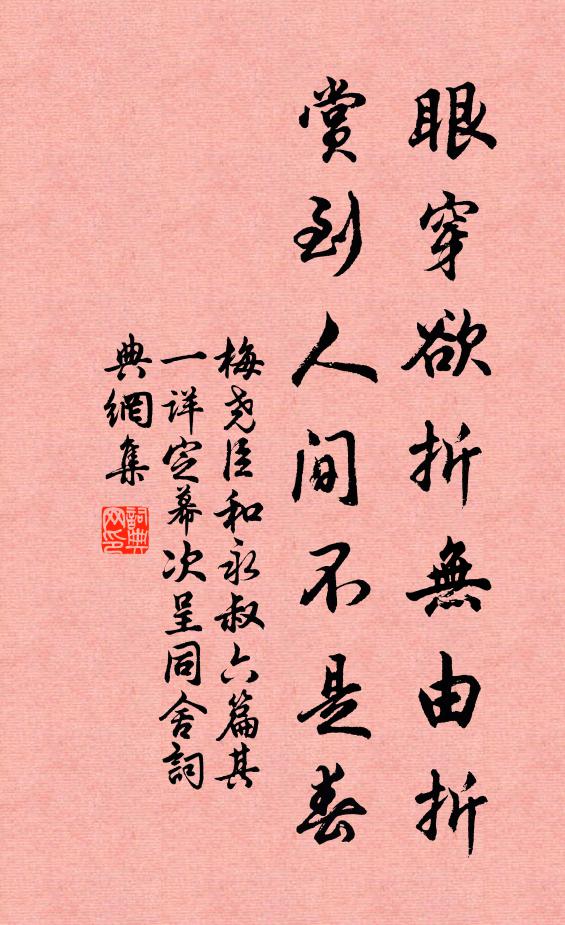 眼穿欲折無由折
賞到人間不是春
梅尧臣和永叔六篇其
一详定幕次呈同舍詞
典網集
詞典
网印